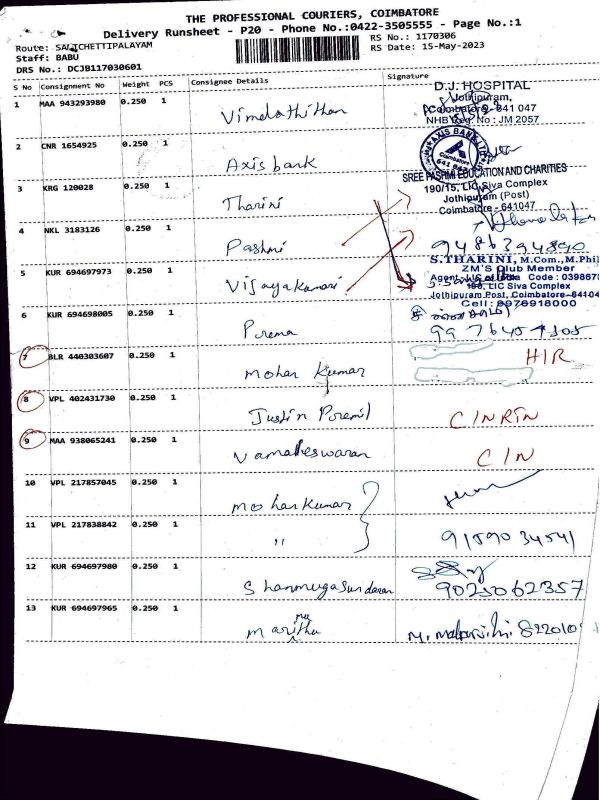 THE PROFESSIONAL COURIERS, COIMBATORE
Delivery Runsheet - P20 - Phone No.:0422-3505555 - Page No.:1
Route: SALICHETTIPALAYAM
RS No.: 1170306
Staff: BABU
RS Date: 15-May-2023
DRS No.: DCJB117030601
S No Consignment No Weight PCS Consignee Details Signature
1 MAA 943293980 0.250 1 Vimalathithan
D.J. HOSPITAL
Jothipuram,
Coimbatore-641 047
NHB Reg. No : JM 2057
2 CNR 1654925 0.250 1 Axis bank
AXIS BANK LTD
Coimbatore
3 KRG 120028 0.250 1 Tharini
SREE PASHMI EDUCATION AND CHARITIES
190/15, LIC Siva Complex
Jothipuram (Post)
Coimbatore - 641047
4 NKL 3183126 0.250 1 Pashmi
9486394890
5 KUR 694697973 0.250 1 Vijayakumari
S.THARINI, M.Com.,M.Phil
ZM'S Club Member
Code : 039867
190, LIC Siva Complex
Jothipuram Post, Coimbatore-64104
Cell : 8978918000
6 KUR 694698005 0.250 1 Prema
7 BLR 440303607 0.250 1 Mohan Kumar HIR
8 VPL 402431730 0.250 1 Justin
9 MAA 938065241 0.250 1 CIN
10 VPL 217857045 1 Mohankumar
11 VPL 217838842 0.250 1 "
9159034541
12 KUR 694697980 0.250 1 Shanmugasundaram
9025062357
13 KUR 694697965 0.250 1